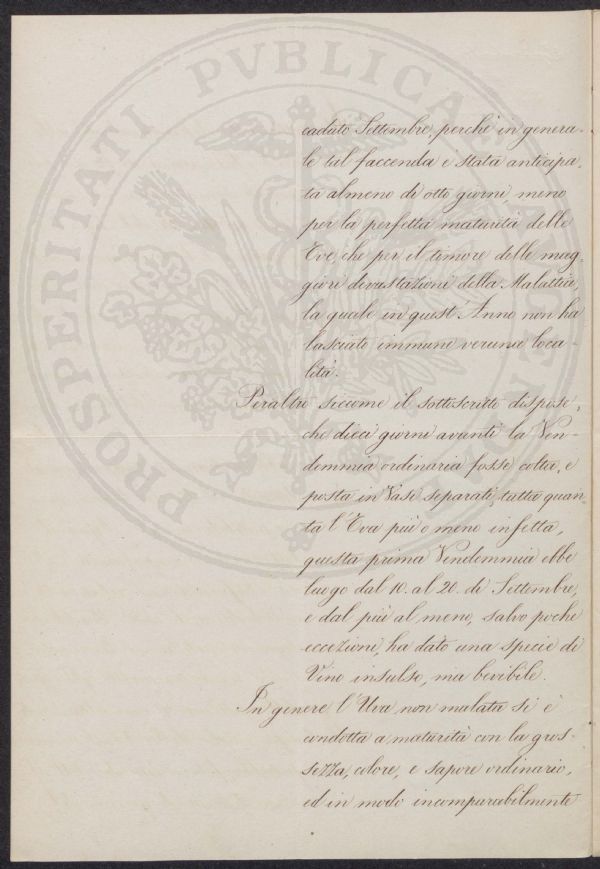 caduto Settembre, perchè in genera-
le tal faccenda è stata anticipa-
ta almeno di otto giorni, meno
per la perfetta maturità delle
Uve, che per il timore delle mag-
giori devastazioni della Malattia,
la quale in quest'Anno non ha
lasciato immune veruna loca-
lità.
Peraltro siccome il sottoscritto dispose,
che dieci giorni avanti la Ven-
demmia ordinaria fosse colta, e
posta in Vasi separati, tutta quan-
ta l'Uva più o meno infetta,
questa prima Vendemmia ebbe
luogo dal 10. al 20. di Settembre,
e dal più al meno, salvo poche
eccezioni, ha dato una specie di
Vino insulso, ma bevibile.
In genere l'Uva non malata si è
condotta a maturità con la gros-
sezza, colore, e sapore ordinario,
ed in modo incomparabilmente
PROSPERITATI PVBLICAE AVGENDAE